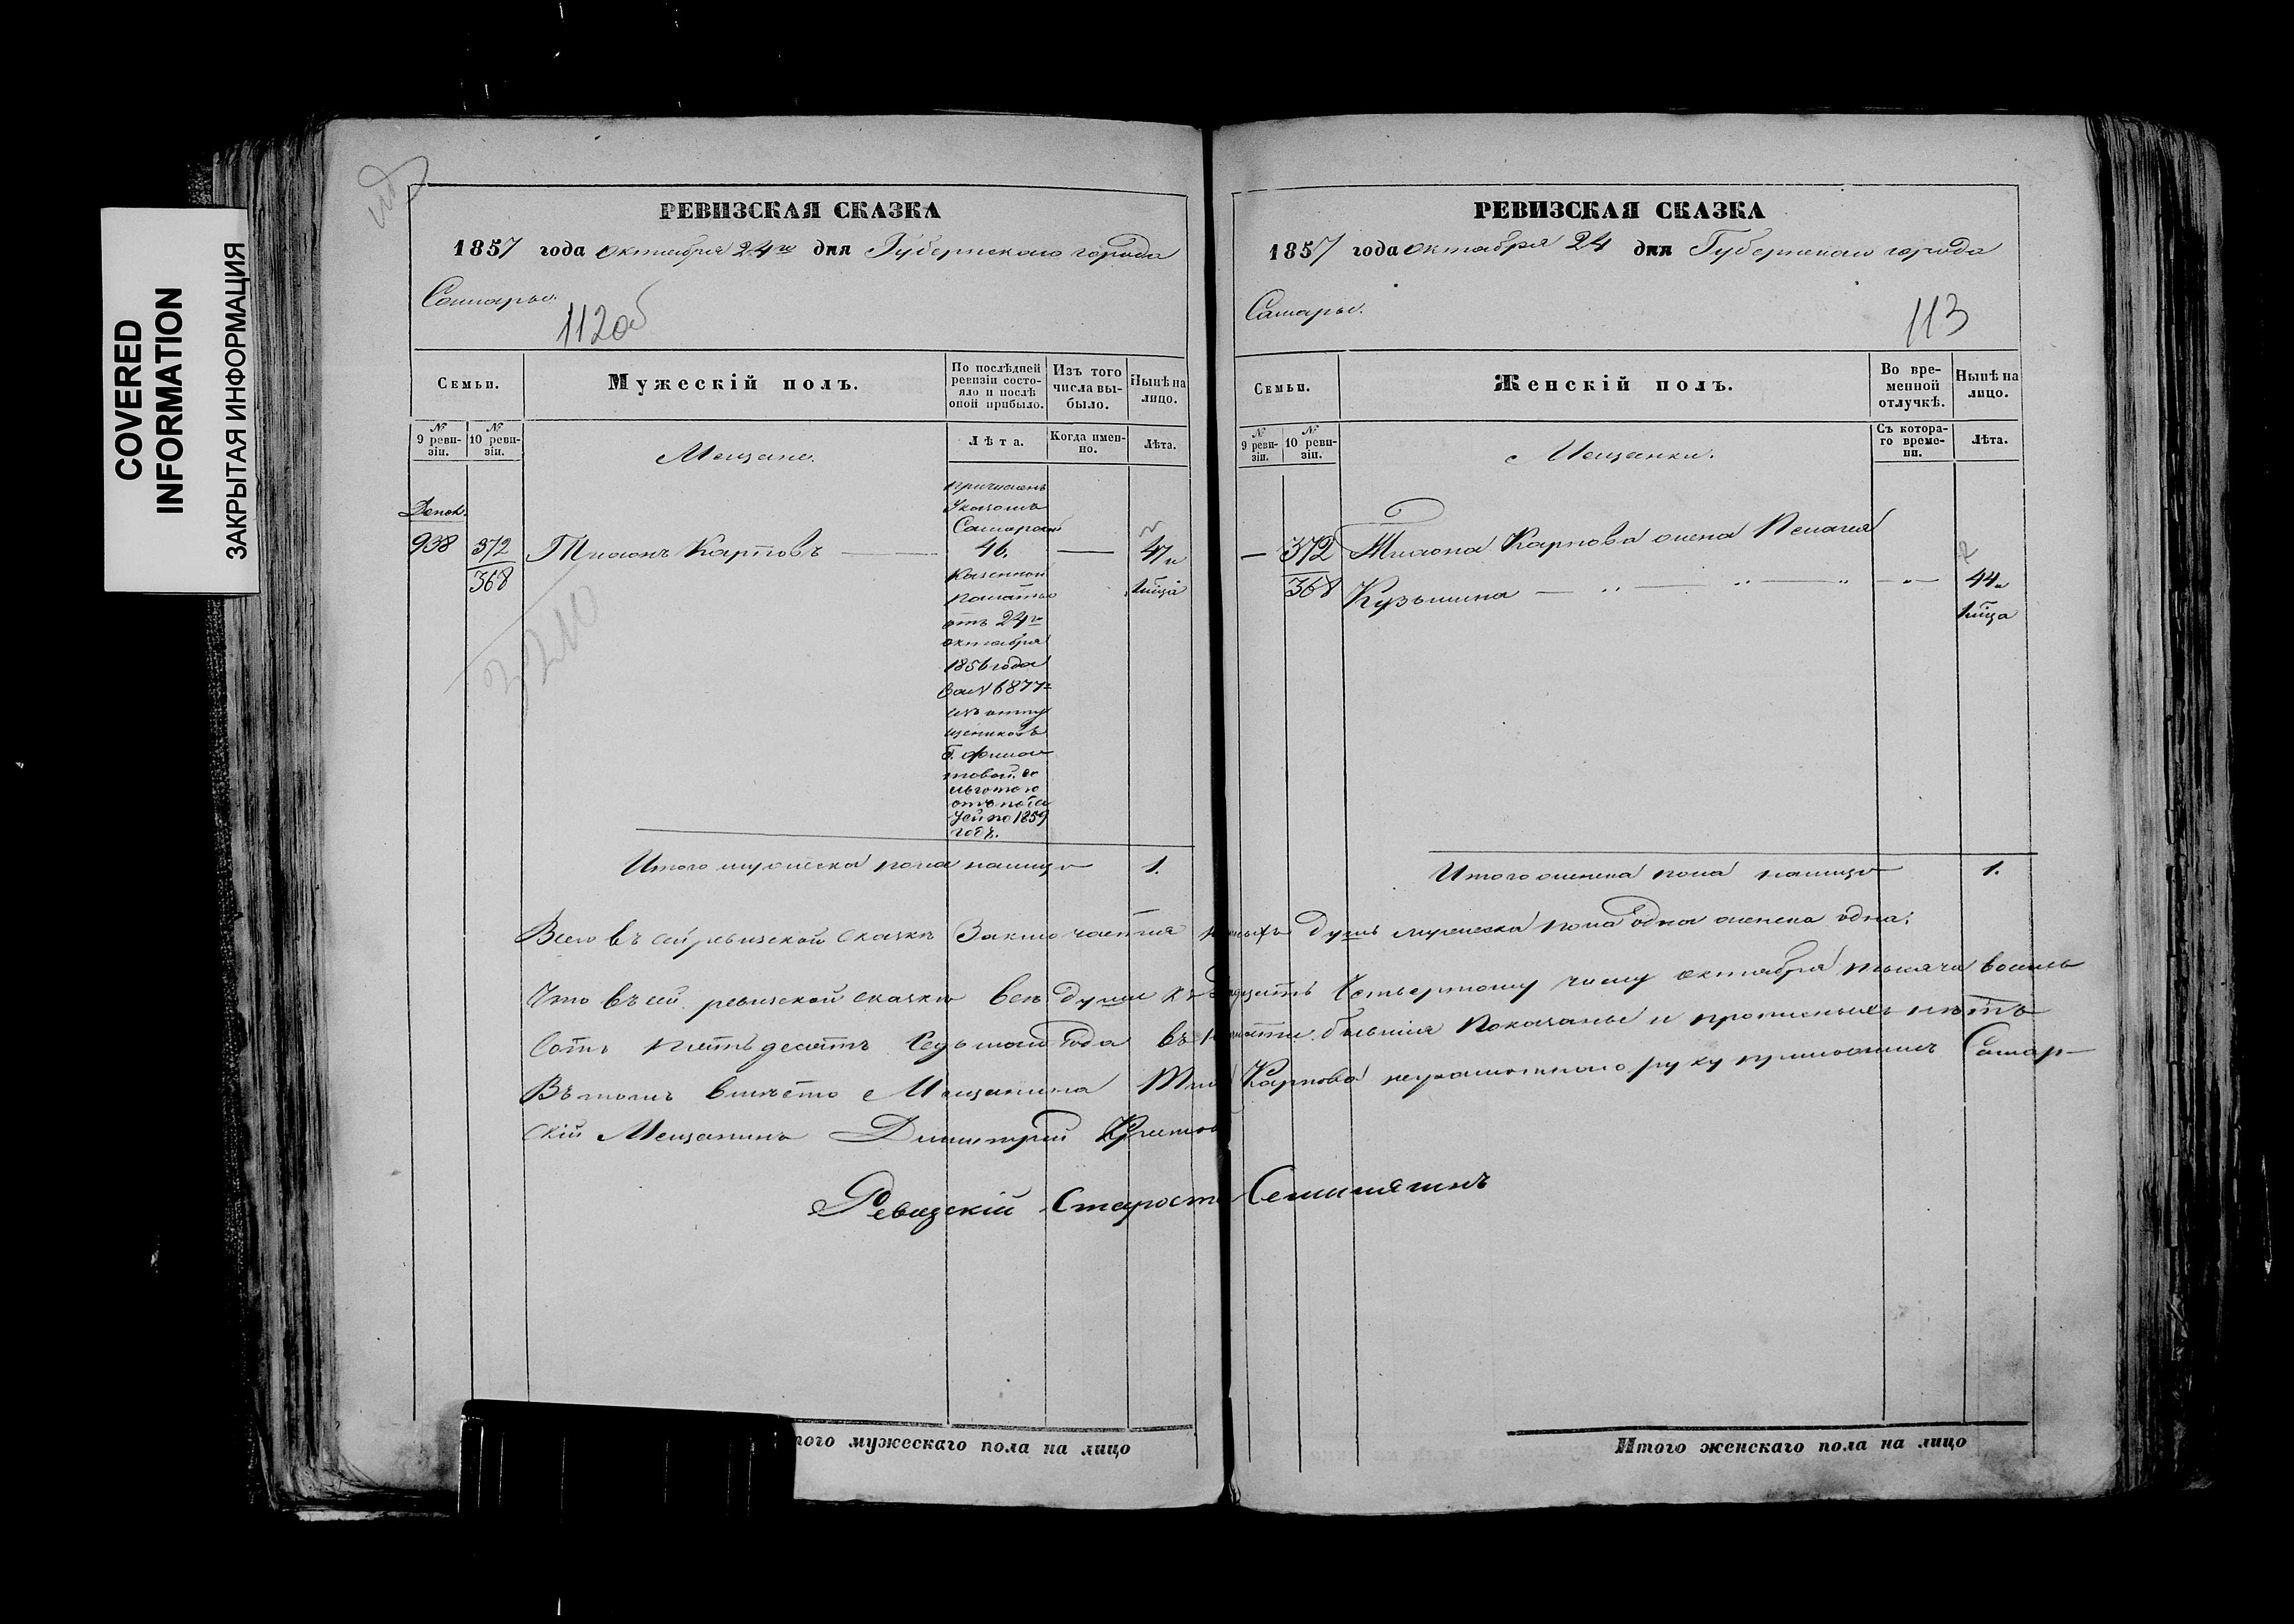 COVERED
INFORMATION
ЗАКРЫТАЯ ИНФОРМАЦИЯ
РЕВИЗСКАЯ СКАЗКА
1857 года октября 24го дня Губернскаго города
Самары.
112об
Семьи.
Мужескій полъ.
По послѣдней ревизіи состояло и послѣ оной прибыло.
Изъ того числа выбыло.
Нынѣ на лицо.
№ 9 ревизіи.
№ 10 ревизіи.
Мещане.
Лѣта.
Когда именно.
Лѣта.
Допол.
938 372 Карповъ 46. 47 и
368
3210
причислен
Указомъ
Самарской
Казенной
Палаты
отъ 24го
октября
1856 года
за № 6877
изъ отпу
щениковъ
Г.
товой со
льготою
отъ пода
тей по 1859
годъ.
лица
Итого мужеска пола налицо 1.
РЕВИЗСКАЯ СКАЗКА
1857 года октября 24 дня Губернскаго города
Самары.
113
Семьи.
Женскій полъ.
Во временной отлучкѣ.
Нынѣ на лицо.
№ 9 ревизіи.
№ 10 ревизіи.
Мещанки.
Съ котораго времени.
Лѣта.
372 Карпова жена Пелагея
368 Кузьмина 44 и
лица
Итого женска пола налицо 1.
Всего въ сей ревизской сказке заключается душъ мужеска пола одна женска одна.
Что въ сей ревизской сказке все души къ четвертому числу октября тысяча восемь
сотъ пятьдесятъ седьмаго года въ бывшія показаны и прописныхъ нѣтъ
Въ томъ вместо Мещанина Карпова неграмотнаго руку приложилъ Самар-
скій Мещанинъ Димитрій
Ревизскій Староста
того мужескаго пола на лицо
Итого женскаго пола на лицо